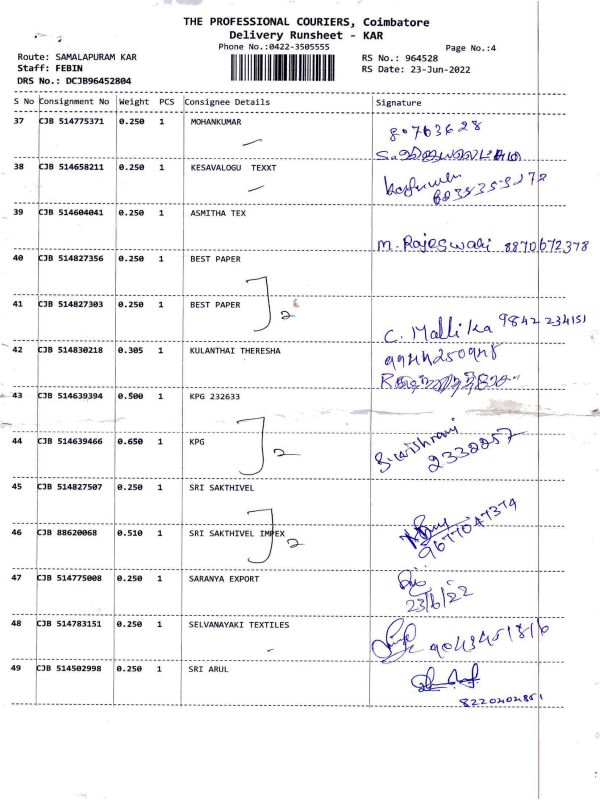 THE PROFESSIONAL COURIERS, Coimbatore
Delivery Runsheet - KAR
Phone No.:0422-3505555
Page No.:4
Route: SAMALAPURAM KAR
RS No.: 964528
Staff: FEBIN
RS Date: 23-Jun-2022
DRS No.: DCJB96452804
S No Consignment No Weight PCS Consignee Details Signature
37 CJB 514775371 0.250 1 MOHANKUMAR
38 CJB 514658211 0.250 1 KESAVALOGU TEXXT
39 CJB 514604041 0.250 1 ASMITHA TEX
M. Rajeswari 8870672378
40 CJB 514827356 0.250 1 BEST PAPER
41 CJB 514827303 0.250 1 BEST PAPER
2
C. Mallika 9842 234151
42 CJB 514830218 0.305 1 KULANTHAI THERESHA
43 CJB 514639394 0.500 1 KPG 232633
44 CJB 514639466 0.650 1 KPG
2
2332257
45 CJB 514827507 0.250 1 SRI SAKTHIVEL
46 CJB 88620068 0.510 1 SRI SAKTHIVEL IMPEX
2
9677047374
47 CJB 514775008 0.250 1 SARANYA EXPORT
23/6/22
48 CJB 514783151 0.250 1 SELVANAYAKI TEXTILES
9043451816
49 CJB 514502998 0.250 1 SRI ARUL
8220404851